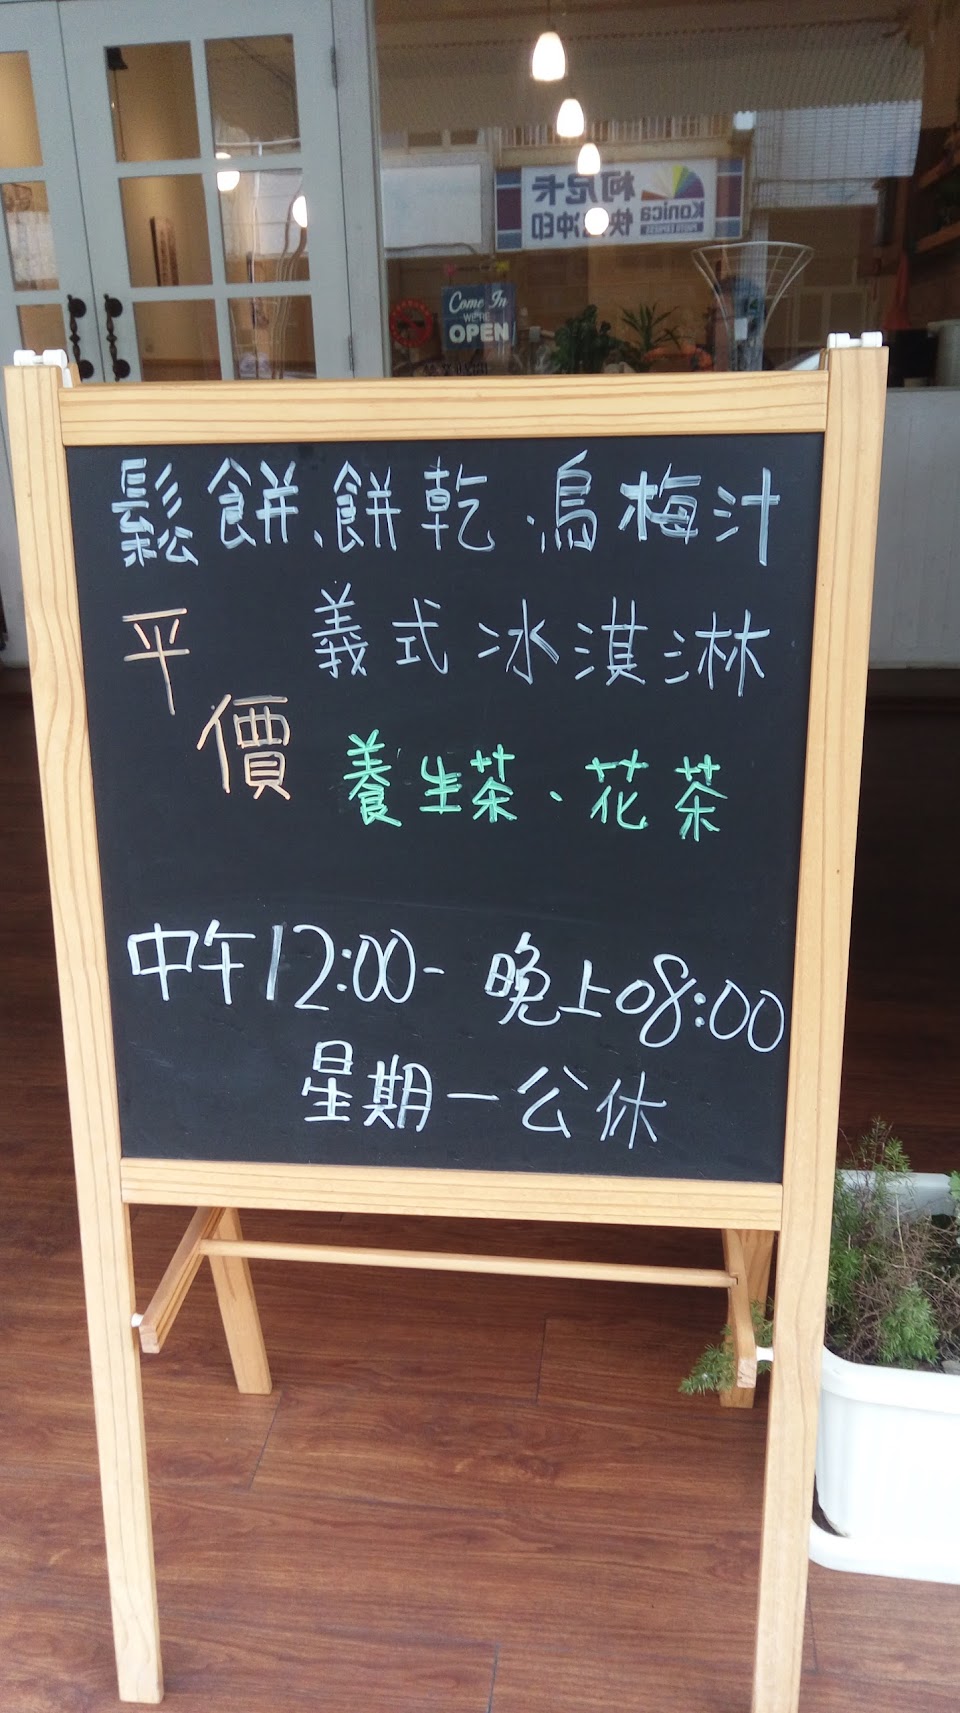 柯尼卡
快速沖印
Konica
PHOTO EXPRESS
Come In
WE'RE
OPEN
鬆餅、餅乾、烏梅汁
平價
義式冰淇淋
養生茶、花茶
中午12:00-晚上08:00
星期一公休